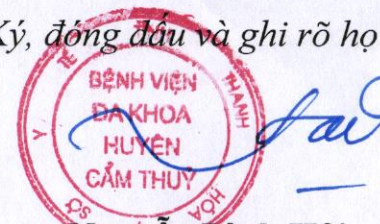 Ký, đóng dấu và ghi rõ họ
SỞ Y TẾ THANH HÓA
BỆNH VIỆN
ĐA KHOA
HUYỆN
CẨM THUỶ